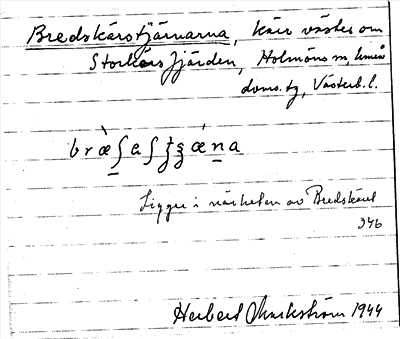 Bredskärstjärnarna, kärr väster om
Storkärsfjärden, Holmöns sn, Umeå
doms. tg, Västerb. l.
Ligger i närheten av Bredskäret
346
Herbert Markström 1944